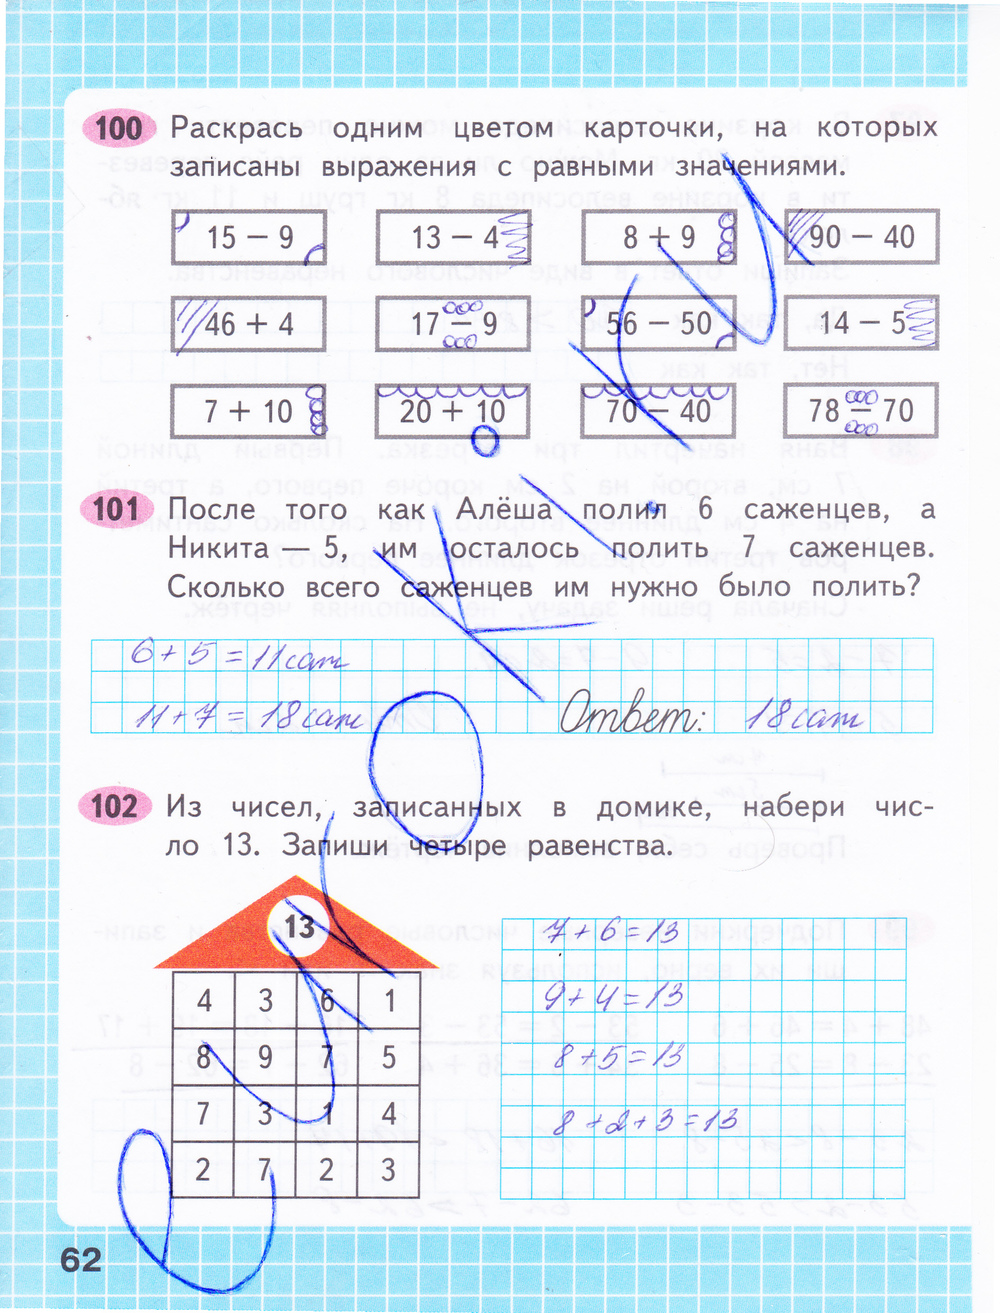 100 Раскрась одним цветом карточки, на которых
записаны выражения с равными значениями.
15 − 9 13 − 4 8 + 9 90 − 40
46 + 4 17 − 9 36 − 30 14 − 5
7 + 10 20 + 10 70 − 40 78 − 70
101 После того как Алёша полил 6 саженцев, а
Никита − 5, им осталось полить 7 саженцев.
Сколько всего саженцев им нужно было полить?
6 + 5 = 11 саж
11 + 7 = 18 саж Ответ: 18 саж
102 Из чисел, записанных в домике, набери чис-
ло 13. Запиши четыре равенства.
13
4 3 6 1
8 9 7 5
7 3 1 4
2 7 2 3
7 + 6 = 13
9 + 4 = 13
8 + 5 = 13
8 + 2 + 3 = 13
62